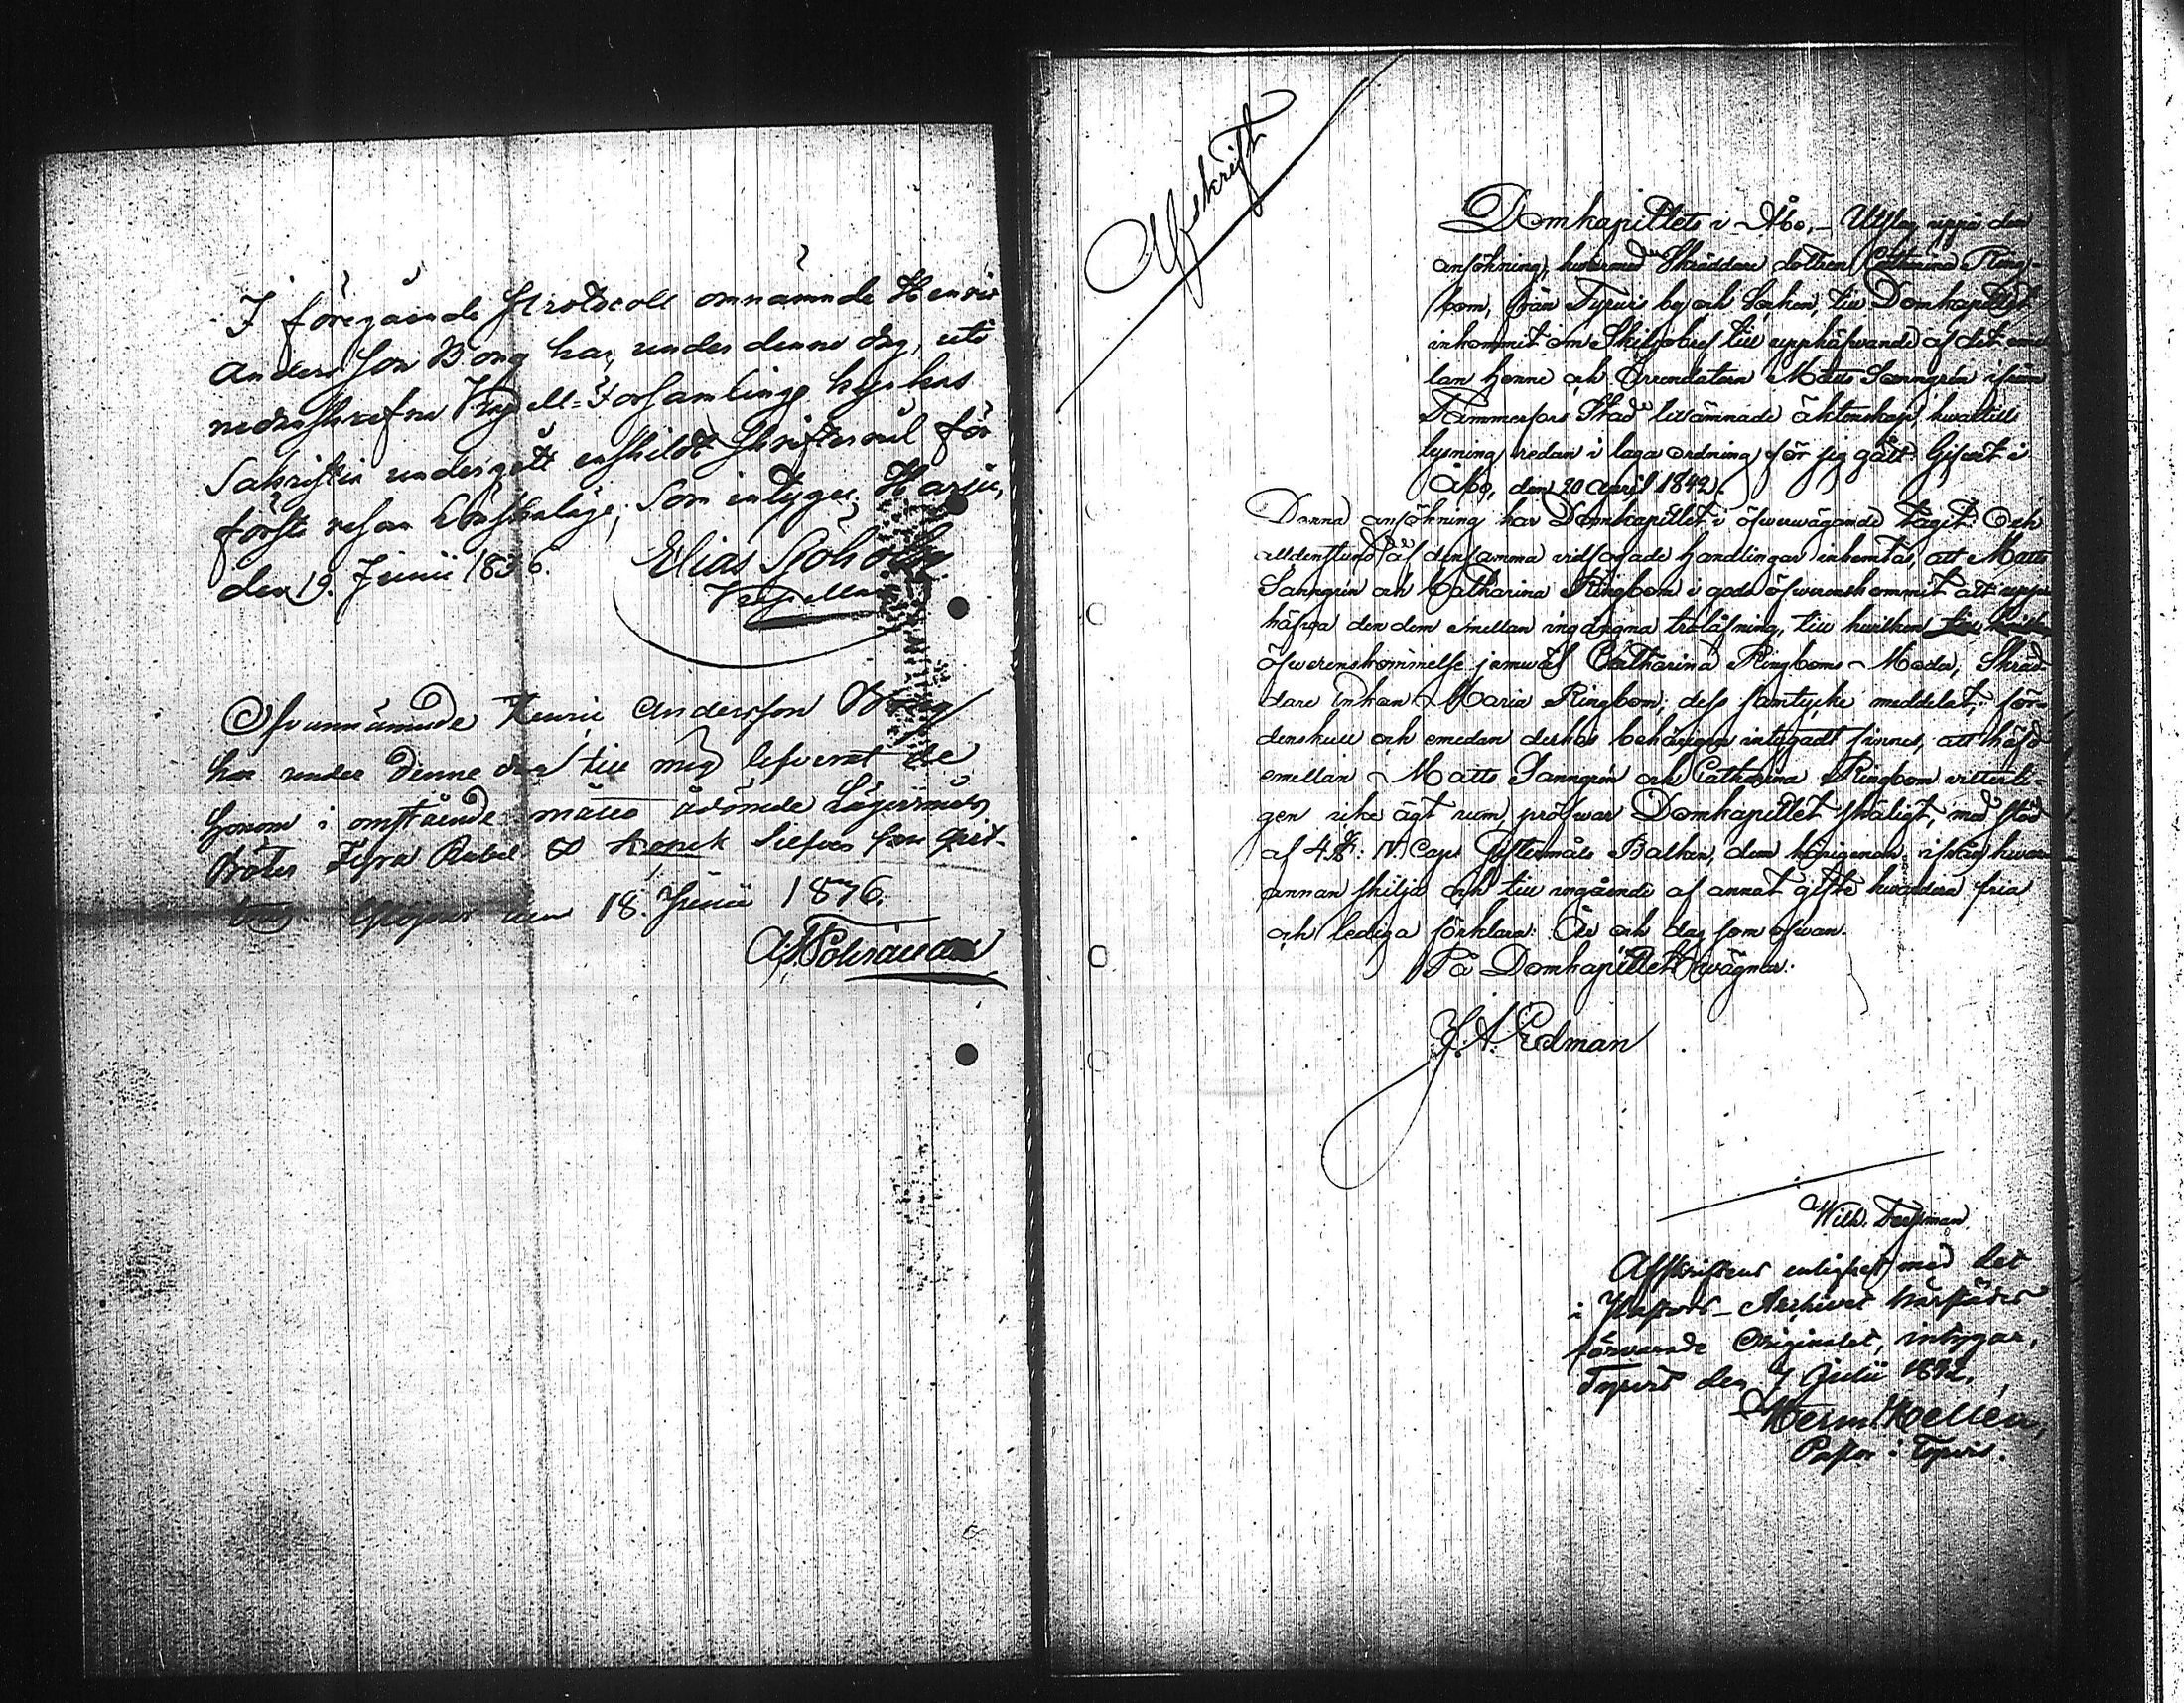 I föregående Protocoll omnämnde Henric
Andersson Bong har, under denne dag, uti
nedanskrefne Kapell-Församlings kyrkas
Sakristia undergått enskildt Skriftermål för
första resan Lönskaläge; Som intygar; Harju,
den 19. Junii 1836.
Elias
Ofvannämnde Henric Andersson Bong
har under denne dag till mig lefverat de
honom i omstående måtto ådömde Lägersmåls
Böter Fyra Rubel 80 Kopek Silfver som qvit-
teras. den 18. Junii 1836.
Afskrift
Domkapitlets i Åbo, Utslag uppå den
ansökning, hvarmed Skräddare dottren Catharina Ring-
bom, från Tyrvis by och Socken, till Domkapitlet
inkommit om Skiljobref till upphäfwande af det emel
lan henne och Arrendatorn Matts Sanngrén ifrån
Tammerfors Stad tillämnade äktenskap, hwartill
lysning redan i laga ordning för sig gått. Gifwet i
Åbo, den 20 April 1842.
Denna ansökning har Domkapitlet i öfwerwägande tagit: Och
alldenstund af densamma vidfogade handlingar inhemtas, att Matts
Sanngrén och Catharina Ringbom i godo öfwerenskommit att upp-
häfwa den dem emellan ingångna trolofning, till hwilken
öfwerenskommelse jemwäl Catharina Ringboms Moder, Skräd-
dare Enkan Maria Ringbom, dess samtycke meddelat; för-
denskull och emedan derhos behörigen intygadt finnes, att häfd
emellan Matts Sanngrén och Catharina Ringbom vitterli-
gen icke ägt rum, pröfwar Domkapitlet skäligt, med stöd
af 4 §: IV Cap: Giftermåls Balken, dem härigenom ifrån hwar-
annan skilja och till ingående af annat gifte hwardera fria
och lediga förklara. År och dag som ofwan.
På Domkapitlets wägnar:
J. A. Edman
Wilh. Forsman
Afskriftens enlighet med det
i Pastors-Archivet härstädes
förvarade Originalet, intygar,
Tyrvis den 7 Julii 1842.
Herm. Hellén,
Pastor i Tyrvis.